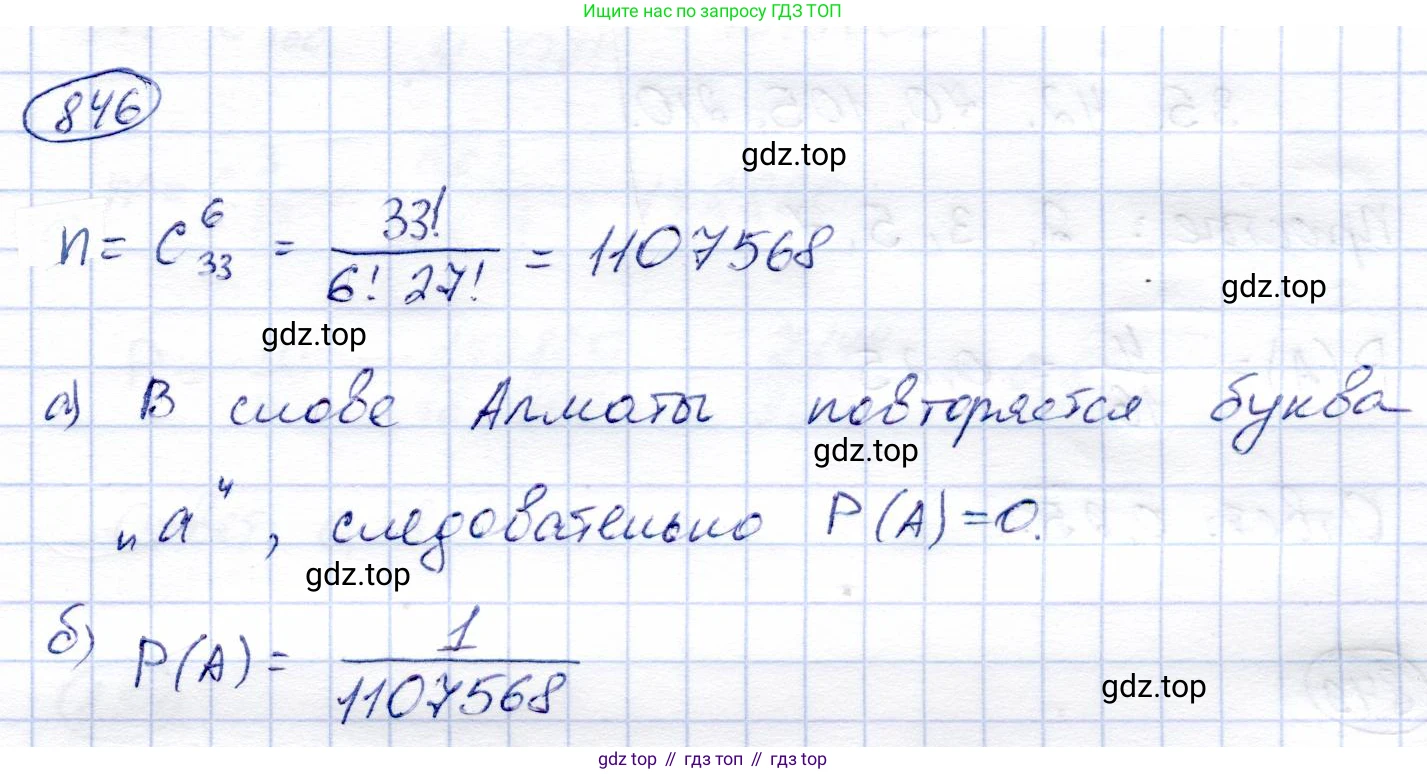 Ищите нас по запросу ГДЗ ТОП
846
gdz.top
n = C⁶₃₃ = 33! / (6! 27!) = 1107568
gdz.top
gdz.top
а) В слове Алматы повторяется буква
gdz.top
„а“, следовательно P(A)=0.
gdz.top
б) P(A) = 1 / 1107568
gdz.top
gdz top // гдз топ // gdz top